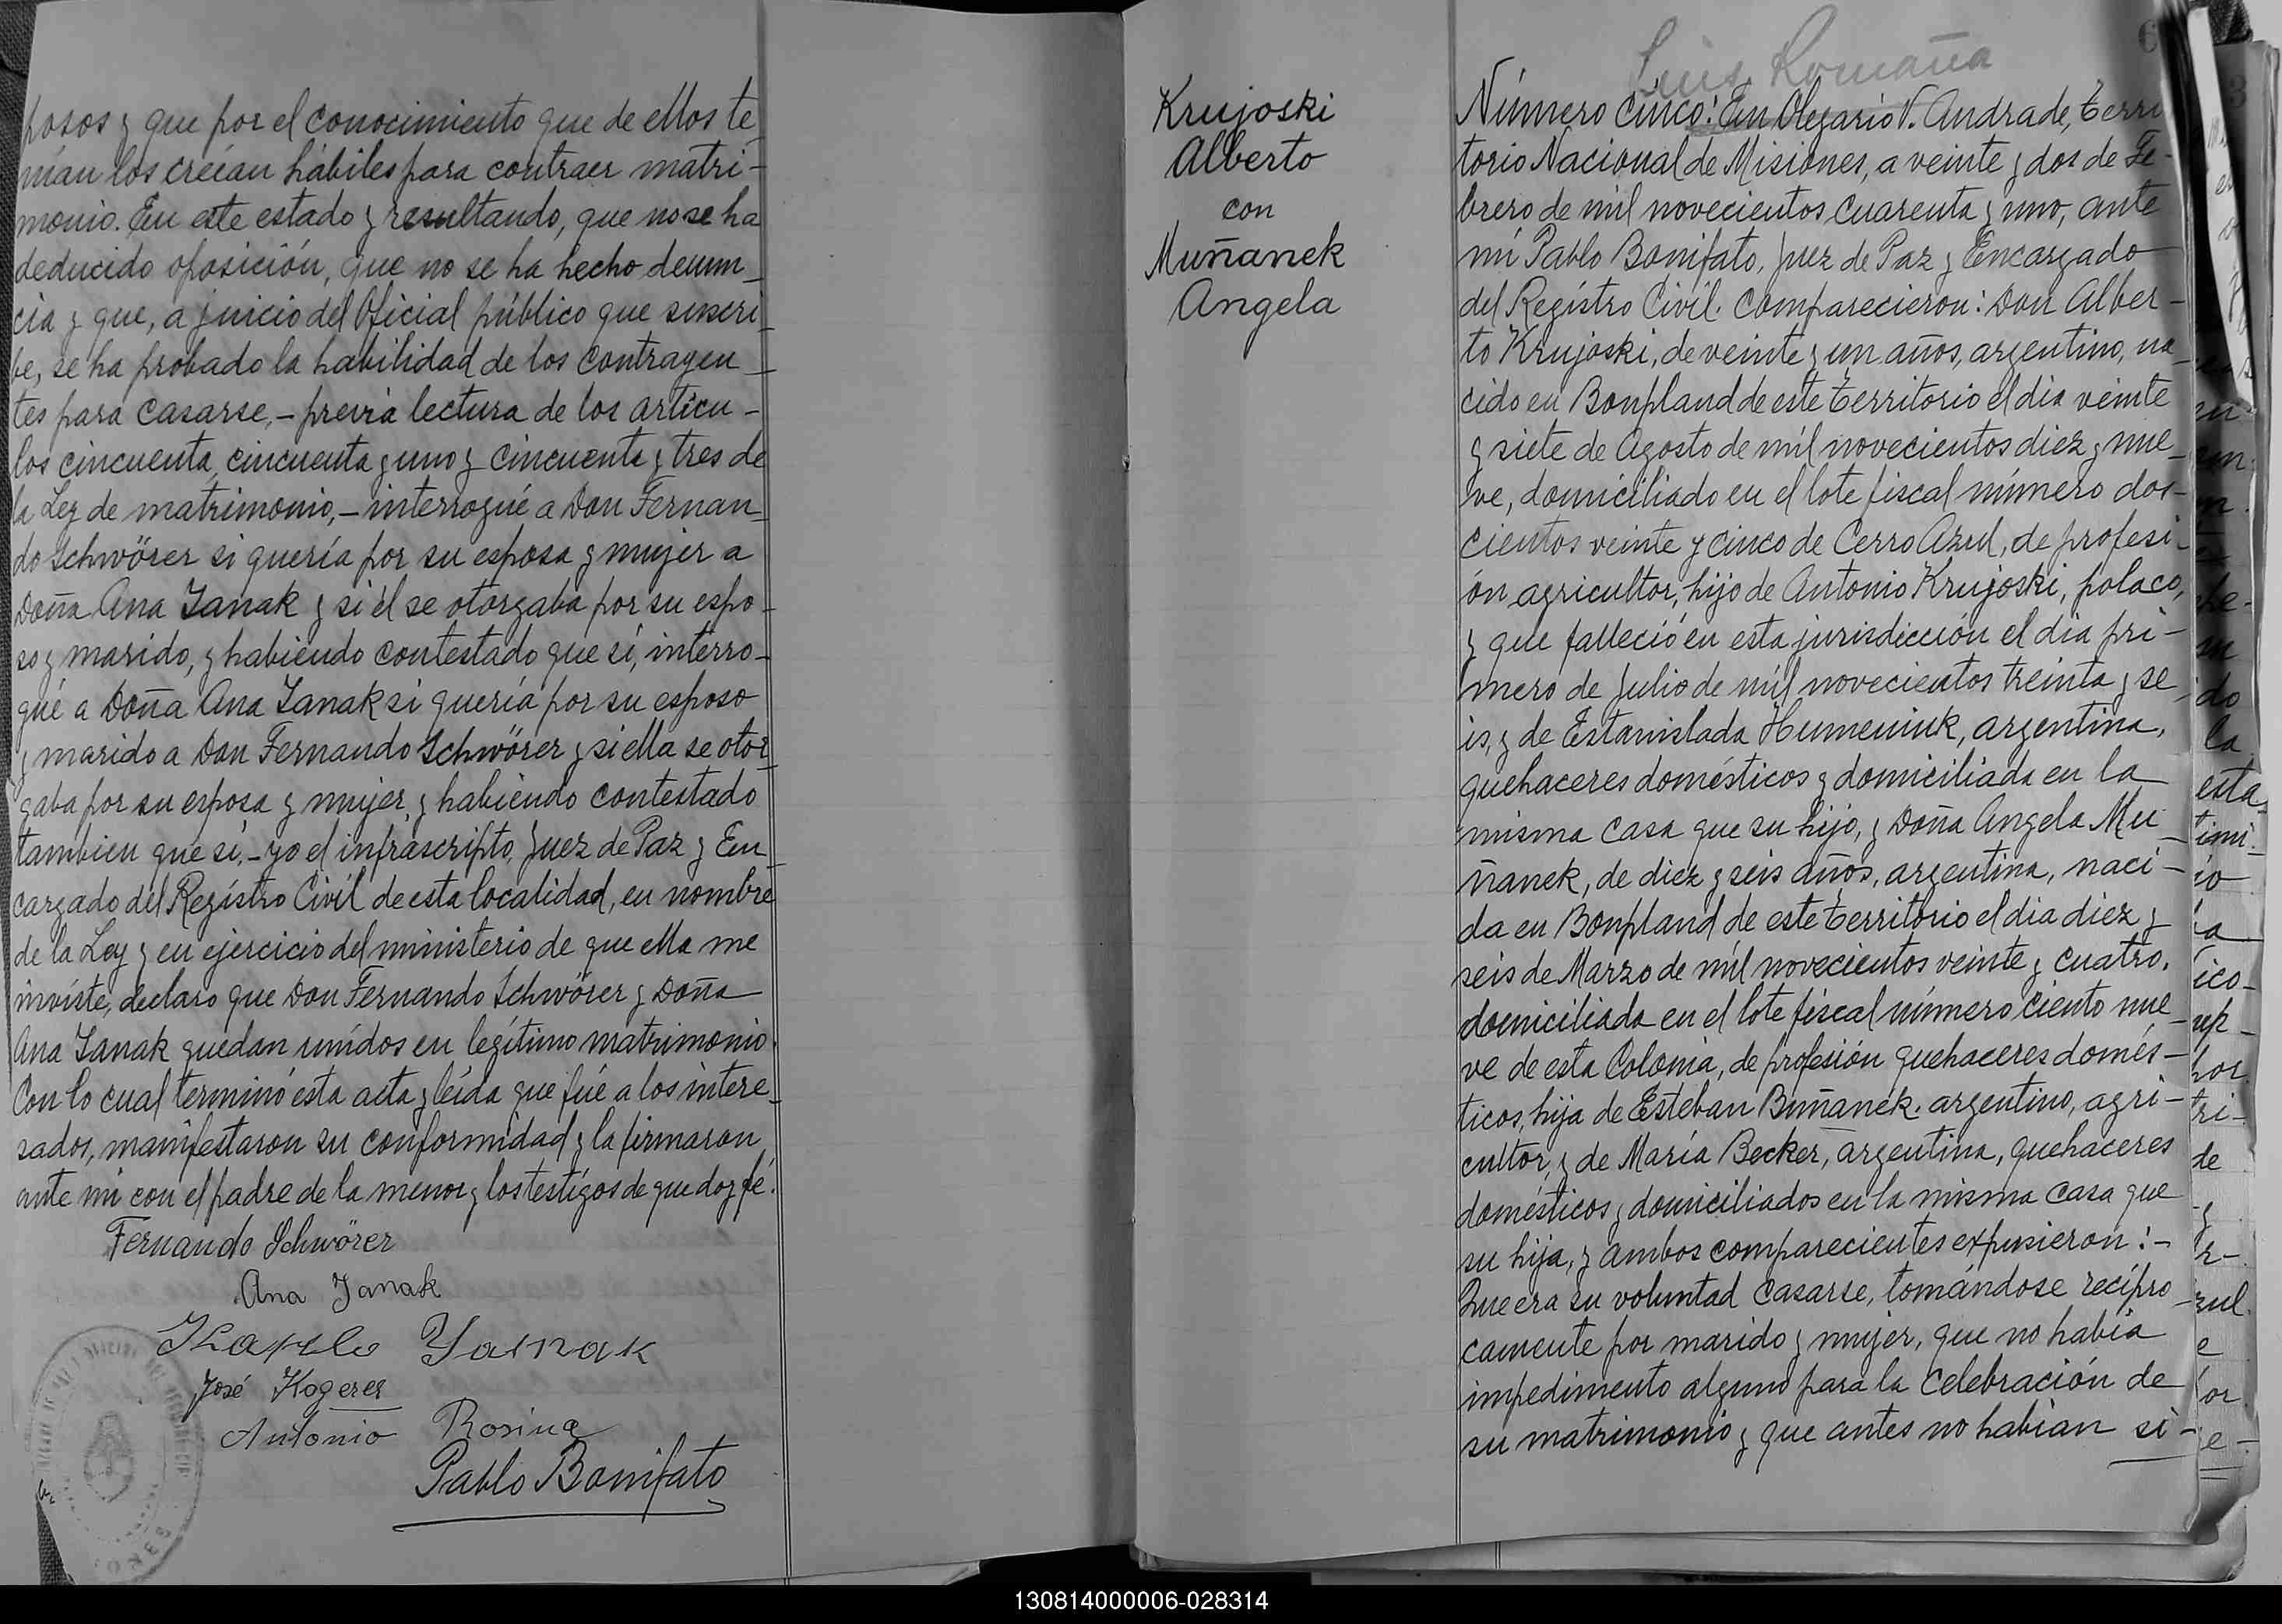 posos y que por el conocimiento que de ellos te
nían los creían hábiles para contraer matri-
monio. En este estado y resultando, que no se ha
deducido oposición, que no se ha hecho denun_
cia y que, a juicio del Oficial público que suscri_
be, se ha probado la habilidad de los contrayen_
tes para casarse,- previa lectura de los artícu-
los cincuenta, cincuenta y uno y cincuenta y tres de
la Ley de matrimonio,- interrogué a Don Fernan_
do Schwörer si quería por su esposa y mujer a
Doña Ana Janak y si él se otorgaba por su espo-
so y marido, y habiendo contestado que sí, interro-
gué a Doña Ana Janak si quería por su esposo
y marido a Don Fernando Schwörer y si ella se otor_
gaba por su esposa y mujer, y habiendo contestado
tambien que sí,- yo el infrascripto, Juez de Paz y En_
cargado del Registro Civil de esta localidad, en nombre
de la Ley y en ejercicio del ministerio de que ella me
inviste, declaro que Don Fernando Schwörer y Doña
Ana Janak quedan unidos en legítimo matrimonio.
Con lo cual terminó esta acta y leída que fué a los intere_
sados, manifestaron su conformidad y la firmaron
ante mí con el padre de la menor y los testigos de que doy fé.
Fernando Schwörer
Ana Janak
Karlo Yanak
José Kogerer
Antonio Rosina
Pablo Bonifato
Krujoski
Alberto
con
Muñanek
Angela
Luis Romaña
6
Número Cinco: En Olegario V. Andrade, terri
torio Nacional de Misiones, a veinte y dos de Fe-
brero de mil novecientos cuarenta y uno, ante
mí Pablo Bonifato, Juez de Paz y Encargado
del Registro Civil. Comparecieron: Don Alber-
to Krujoski, de veinte y un años, argentino, na_
cido en Bonpland de este territorio el dia veinte
y siete de Agosto de mil novecientos diez y nue_
ve, domiciliado en el lote fiscal número dos-
cientos veinte y cinco de Cerro Azul, de profesi-
ón agricultor, hijo de Antonio Krujoski, polaco,
y que falleció en esta jurisdicción el día pri-
mero de Julio de mil novecientos treinta y se
is, y de Estanislada Humeniuk, argentina,
quehaceres domésticos y domiciliada en la
misma casa que su hijo, y Doña Angela Mu_
ñanek, de diez y seis años, argentina, naci-
da en Bonpland de este territorio el dia diez y
seis de Marzo de mil novecientos veinte y cuatro,
domiciliada en el lote fiscal número ciento nue_
ve de esta Colonia, de profesión quehaceres domés-
ticos, hija de Esteban Buñanek, argentino, agri-
cultor, y de María Becker, argentina, quehaceres
domésticos y domiciliados en la misma casa que
su hija, y ambos comparecientes expusieron:-
Que era su voluntad casarse, tomándose recípro_
camente por marido y mujer, que no había
impedimento alguno para la celebración de
su matrimonio y que antes no habían si-
130814000006-028314